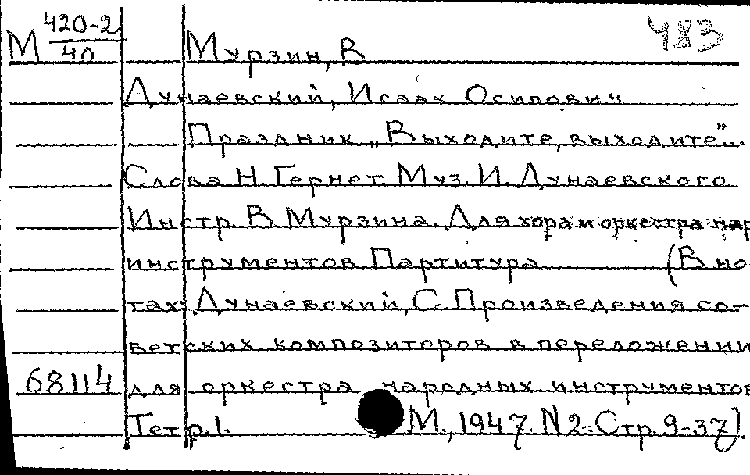 М 420-2/40 Мурзин, В 483
Дунаевский, Исаак Осипович
Праздник „Выходите, выходите"...
Слова Н. Гернет Муз. И. Дунаевского
Инстр. В. Мурзина. Для хора и оркестра нар
инструментов Партитура (В но
тах: Дунаевский, С. Произведения со-
ветских композиторов в переложении
68114 для оркестра народных инструментов
Тетр. 1. М., 1947. N 2. Стр. 9-37).